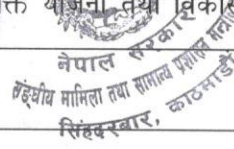 योजना तथा विकास
नेपाल सरकार
सङ्घीय मामिला तथा सामान्य प्रशासन
सिंहदरबार, काठमाडौं